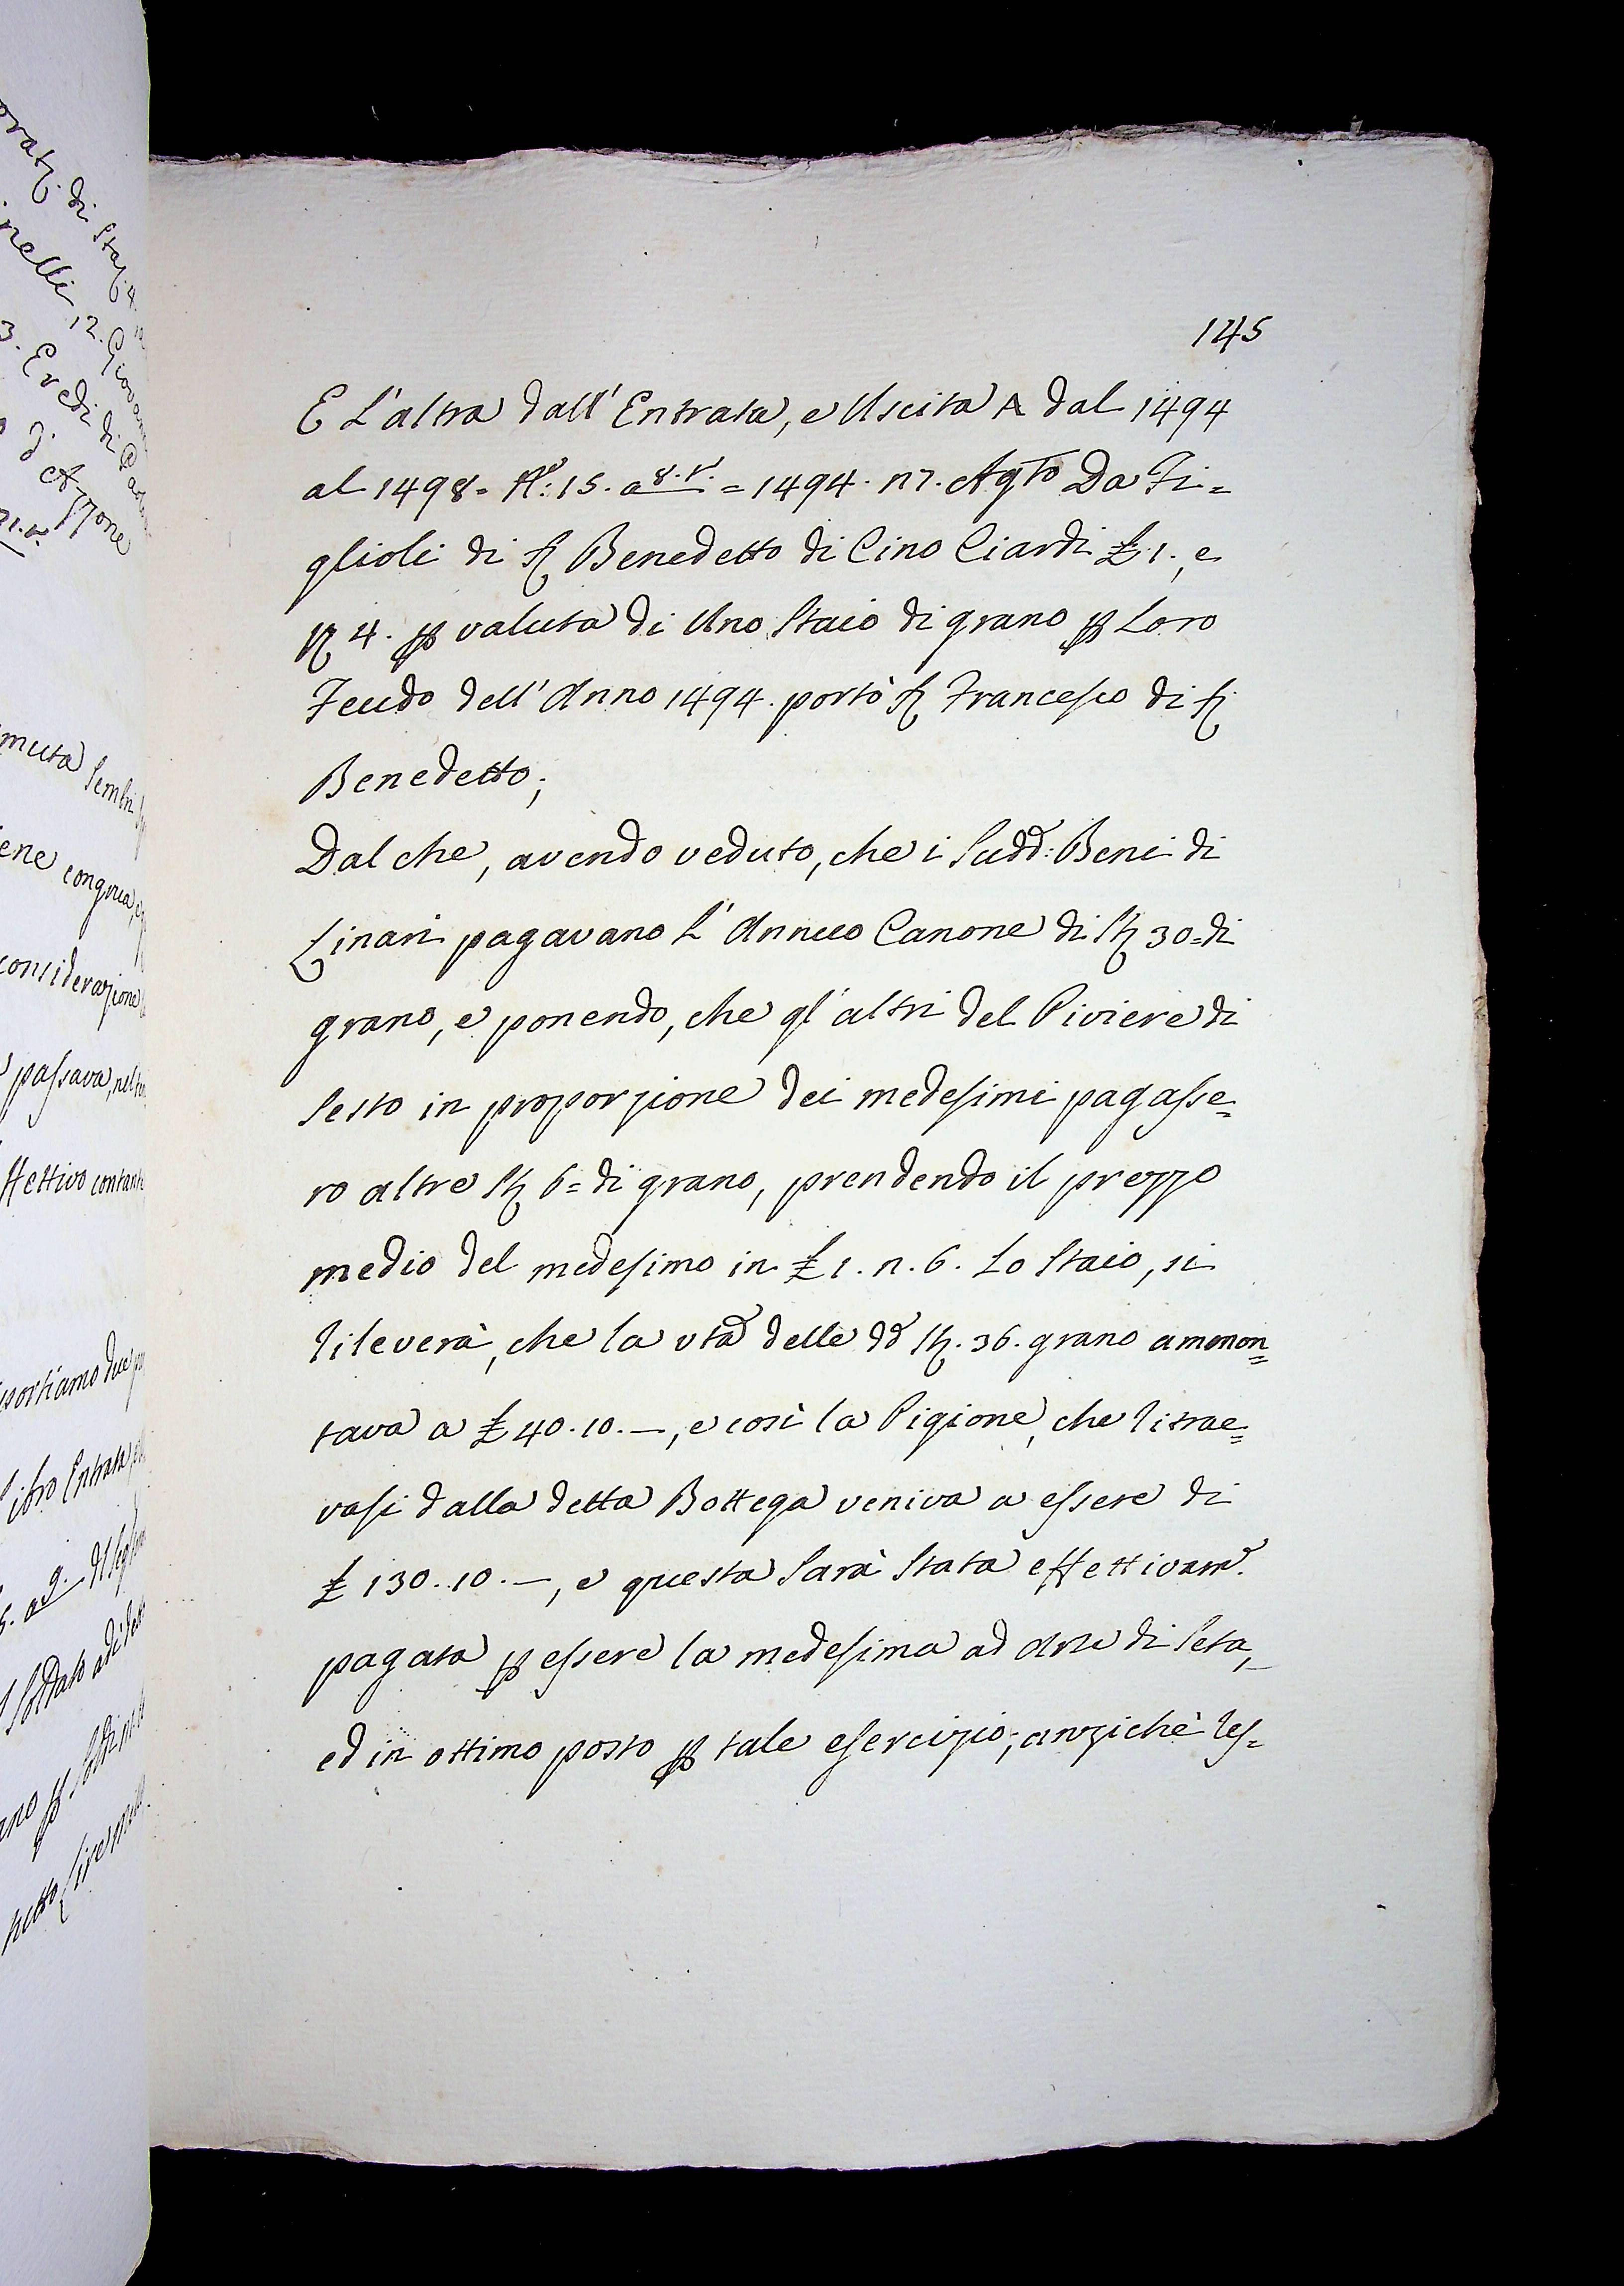 145
E L'altra dall'Entrata, e Uscita A dal 1494
al 1498. No: 15. a 8. = 1494. n7. Agto Da Fi=
glioli di S. Benedetto di Cino Ciardi £.1., e
4. p valuta di Uno Staio di grano p Loro
Feudo dell'Anno 1494. portò S. Francesco di S.
Benedetto;
Dal che, avendo veduto, che i Sudd: Beni di
Linari pagavano L'Annuo Canone di St. 30= di
grano, e ponendo, che gl'altri del Piviere di
Sesto in proporzione dei medesimi pagasse=
ro altre St. 6= di grano, prendendo il prezzo
medio del medesimo in £ 1. n. 6. Lo Staio, si
rileverà, che la vta delle dd St. 36. grano ammon=
tava a £ 40. 10. —, e così la Pigione, che ritrae=
vasi dalla detta Bottega veniva a essere di
£ 130. 10. —, e questa Sarà Stata effettivame.
pagata p essere la medesima ad Arte di Seta,
ed in ottimo posto p tale esercizio; anzichè res=
di Sta
nelli 12. Giovan
3. Eredi di
d'Azzone
muta Sembri
congrua
considerazione
passava, nel
ffettivo contante
portiamo due
ibro Entrata
Soldato adì
ano p Soldi
netto Lire mill